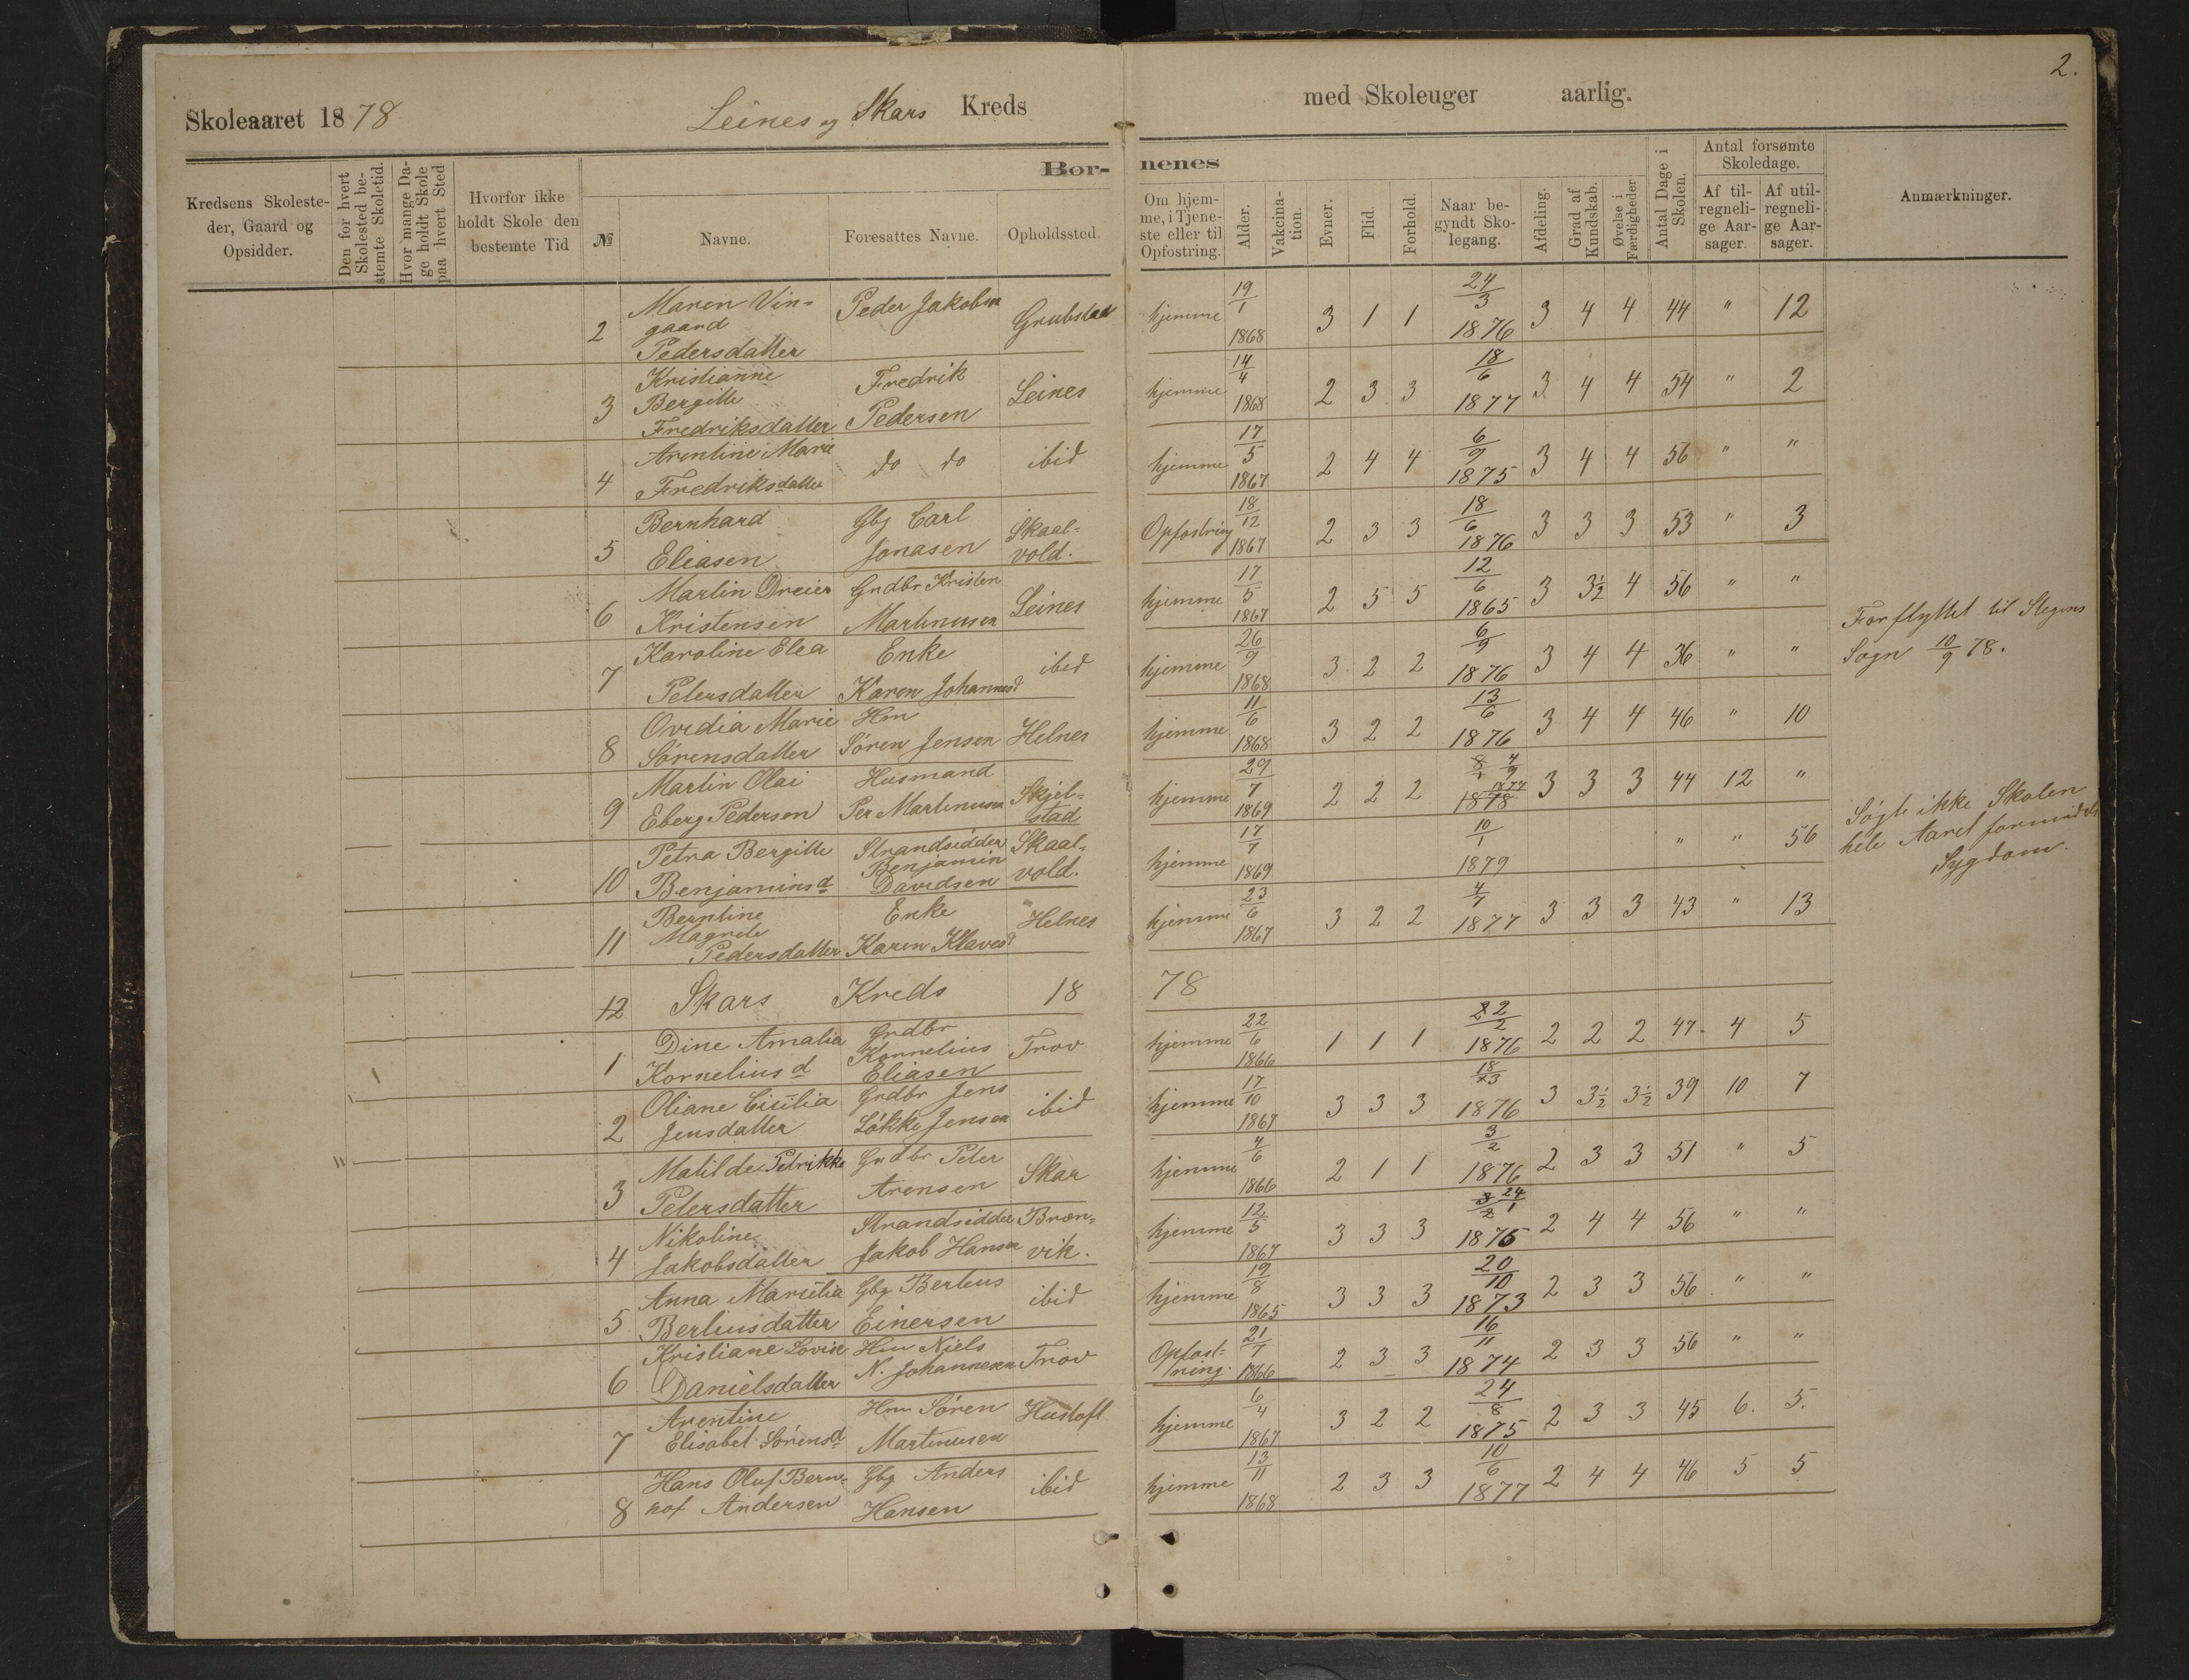 2.
Skoleaaret 1878 Leines og Skars Kreds med Skoleuger aarlig.
Bør- nenes
Kredsens Skolesteder, Gaard og Opsidder.
Den for hvert Skolested bestemte Skoletid.
Hvor mange Dage holdt Skole paa hvert Sted
Hvorfor ikke holdt Skole den bestemte Tid
№
Navne.
Foresattes Navne.
Opholdssted.
Om hjemme, i Tjeneste eller til Opfostring.
Alder.
Vakcination.
Evner.
Flid.
Forhold.
Naar begyndt Skolegang.
Afdeling.
Grad af Kundskab.
Øvelse i Færdigheder
Antal Dage i Skolen.
Antal forsømte Skoledage.
Af tilregnelige Aarsager.
Af utilregnelige Aarsager.
Anmærkninger.
2 Maren Vingaard Pedersdatter Peder Jakobsen Grubstad hjemme 19/1 1868 3 1 1 24/3 1876 3 4 4 44 " 12
3 Kristianne Bergitte Fredriksdatter Fredrik Pedersen Leines hjemme 14/4 1868 2 3 3 18/6 1877 3 4 4 54 " 2
4 Arentine Marie Fredriksdatter do do ibid hjemme 17/5 1867 2 4 4 6/9 1875 3 4 4 56 " "
5 Bernhard Eliasen Gbg Carl Jonasen Skaalvold. Opfostring 18/12 1867 2 3 3 18/6 1876 3 3 3 53 " 3
6 Martin Dreier Kristensen Grdbr Kristen Martinusen Leines hjemme 17/5 1867 2 5 5 12/6 1865 3 3½ 4 56 " "
7 Karoline Elea Petersdatter Enke Karen Johannesd ibid hjemme 26/9 1868 3 2 2 6/9 1876 3 4 4 36 " " Forflyttet til Stegens Sogn 10/9 78.
8 Ovidia Marie Sørensdatter Hm Søren Jensen Helnes hjemme 11/6 1868 3 2 2 13/6 1876 3 4 4 46 " 10
9 Martin Olai Eberg Pedersen Husmand Per Martinusen Skjelstad hjemme 29/7 1869 2 2 2 8/1 1878 4/9 1877 3 3 3 44 12 "
10 Petra Bergitte Benjaminsd Strandsidder Benjamin Davidsen Skaalvold. hjemme 17/7 1869 10/1 1879 " " 56 Søgte ikke Skolen hele Aaret formedelst Sygdom.
11 Berntine Magrete Pedersdatter Enke Karen Klavesd Helnes hjemme 23/6 1867 3 2 2 4/7 1877 3 3 3 43 " 13
12 Skars Kreds 18 78
1 Dine Amalia Kornelius d Grdbr Kornelius Eliasen Trov hjemme 22/6 1866 1 1 1 22/2 1876 2 2 2 47. 4 5
2 Oliane Cicilia Jensdatter Grdbr Jens Løkke Jensen ibid hjemme 17/10 1867 3 3 3 18/3 1876 3 3½ 3½ 39 10 7
3 Matilde Petrikke Petersdatter Grdbr Peter Arensen Skar hjemme 4/6 1866 2 1 1 3/2 1876 2 3 3 51 " 5
4 Nikoline Jakobsdatter Strandsidder Jakob Hansen Brønvik. hjemme 12/5 1867 3 3 3 3/2 24/1 1876 2 4 4 56 " "
5 Anna Marielia Berteusdatter Gbg Berteus Einersen ibid hjemme 19/8 1865 3 3 3 20/10 1873 2 3 3 56 " "
6 Kristiane Lovise Danielsdatter Hm Niels N. Johannesen Trov Opfostring. 21/7 1866 2 3 3 16/11 1874 2 3 3 56 " "
7 Arentine Elisabet Sørensd Hm Søren Martinusen Hustoft hjemme 6/4 1867 3 2 2 24/8 1875 2 3 3 45 6. 5.
8 Hans Oluf Bernhof Andersen Gbg Anders Hansen ibid hjemme 13/11 1868 2 3 3 10/6 1877 2 4 4 46 5 5